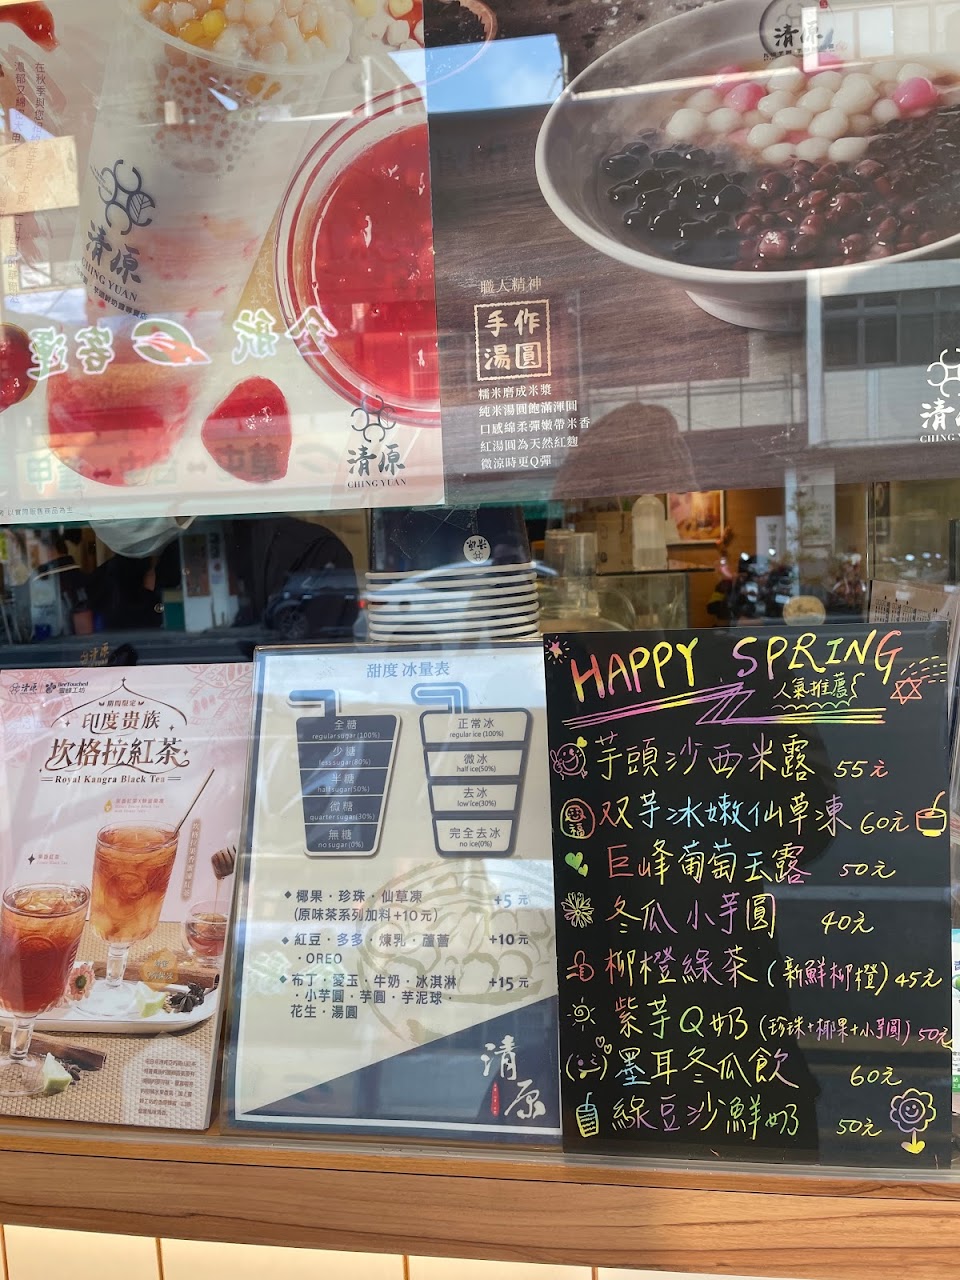 清原
CHING YUAN
清原
CHING YUAN
清原
職人精神
手作
湯圓
糯米磨成米漿
純米湯圓飽滿渾圓
口感綿柔彈嫩帶米香
紅湯圓為天然紅麴
微涼時更Q彈
清原
CHING YUAN
全航客運
清原 BeeTouched 蜜蜂工坊
期間限定
印度貴族
坎格拉紅茶
Royal Kangra Black Tea
甜度 冰量表
全糖
regular sugar(100%)
少糖
less sugar(80%)
半糖
half sugar(50%)
微糖
quarter sugar(30%)
無糖
no sugar(0%)
正常冰
regular ice (100%)
微冰
half ice(50%)
去冰
low ice(30%)
完全去冰
no ice(0%)
◆椰果・珍珠・仙草凍 +5元
(原味茶系列加料+10元)
◆紅豆・多多・煉乳・蘆薈 +10元
・OREO
◆布丁・愛玉・牛奶・冰淇淋 +15元
・小芋圓・芋圓・芋泥球・
花生・湯圓
清原
HAPPY SPRING
人氣推薦
芋頭沙西米露 55元
双芋冰嫩仙草凍 60元
巨峰葡萄玉露 50元
冬瓜小芋圓 40元
柳橙綠茶(新鮮柳橙)45元
紫芋Q奶(珍珠+椰果+小芋圓)50元
墨耳冬瓜飲 60元
綠豆沙鮮奶 50元